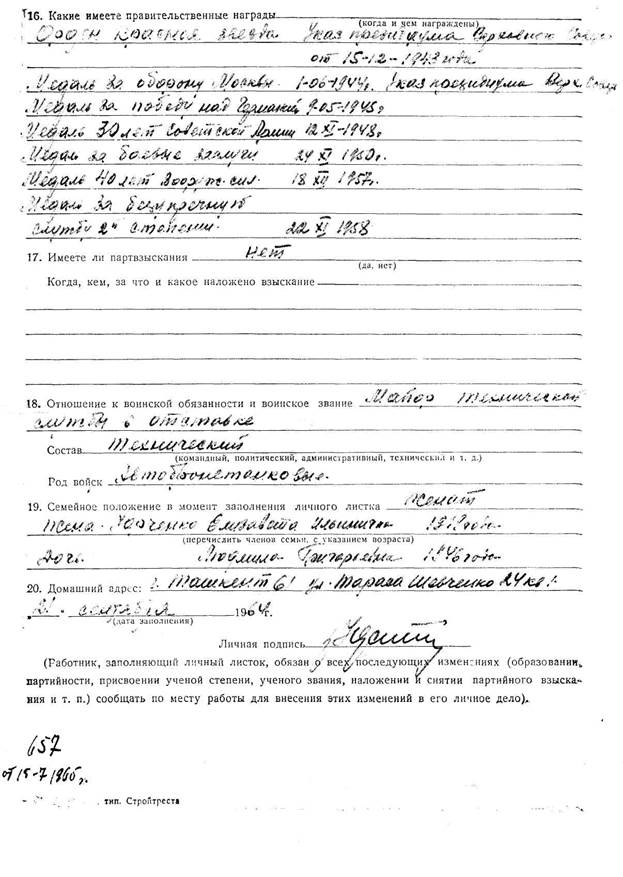 16. Какие имеете правительственные награды
(когда и чем награждены)
Орден красная звезда Указ президиума Верховного
от 15-12-1943 года
Медаль За оборону Москвы. 1-06-1944г. Указ президиума Верх.
Медаль За победу над Германией 9-05-1945г
Медаль 30 лет Советской Армии 12 XI-1948г.
Медаль За боевые заслуги 24 XI 1950г.
Медаль 40 лет Вооруж. сил. 18 XII 1957г.
Медаль За безупречную
службу 2й степени. 22 XI 1958
17. Имеете ли партвзыскания нет
(да, нет)
Когда, кем, за что и какое наложено взыскание
18. Отношение к воинской обязанности и воинское звание Майор технической
службы в отставке
Состав технический
(командный, политический, административный, технический и т. д.)
Род войск Автобронетанковые.
19. Семейное положение в момент заполнения личного листка женат
Жена - Елизавета Ильинична
(перечислить членов семьи, с указанием возраста)
Дочь. Людмила Григорьевна 1946 годa
20. Домашний адрес: г. Ташкент 61 ул. Тараса Шевченко 24
21. сентября 1964г.
(дата заполнения)
Личная подпись
(Работник, заполняющий личный листок, обязан о всех последующих изменениях (образовании,
партийности, присвоении ученой степени, ученого звания, наложении и снятии партийного взыска-
ния и т. п.) сообщать по месту работы для внесения этих изменений в его личное дело).
657
от 15-7 1965г.
тип. Стройтреста